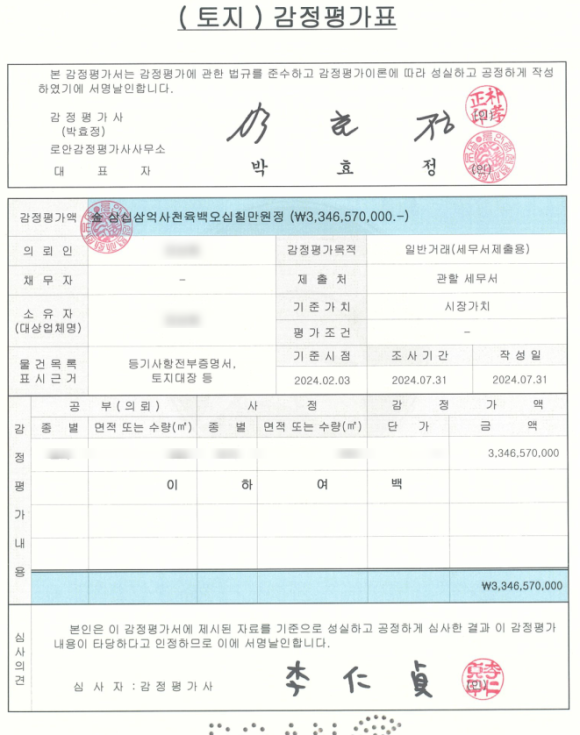 ( 토지 ) 감정평가표
본 감정평가서는 감정평가에 관한 법규를 준수하고 감정평가이론에 따라 성실하고 공정하게 작성
하였기에 서명날인합니다.
감 정 평 가 사
(박효정)
로안감정평가사사무소
대 표 자
박 효 정 (인)
감정평가액 金 삼십삼억사천육백오십칠만원정 (₩3,346,570,000.–)
의 뢰 인 감정평가목적 일반거래(세무서제출용)
채 무 자 – 제 출 처 관할 세무서
소 유 자
(대상업체명)
기 준 가 치 시장가치
평 가 조 건 –
물 건 목 록
표 시 근 거
등기사항전부증명서,
토지대장 등
기 준 시 점 조 사 기 간 작 성 일
2024.02.03 2024.07.31 2024.07.31
감 정 평 가 내 용
공 부 ( 의 뢰 ) 사 정 감 정 가 액
종 별 면적 또는 수량(㎡) 종 별 면적 또는 수량(㎡) 단 가 금 액
3,346,570,000
이 하 여 백
₩3,346,570,000
심 사 의 견
본인은 이 감정평가서에 제시된 자료를 기준으로 성실하고 공정하게 심사한 결과 이 감정평가
내용이 타당하다고 인정하므로 이에 서명날인합니다.
심 사 자 : 감 정 평 가 사 李 仁 貞 (인)